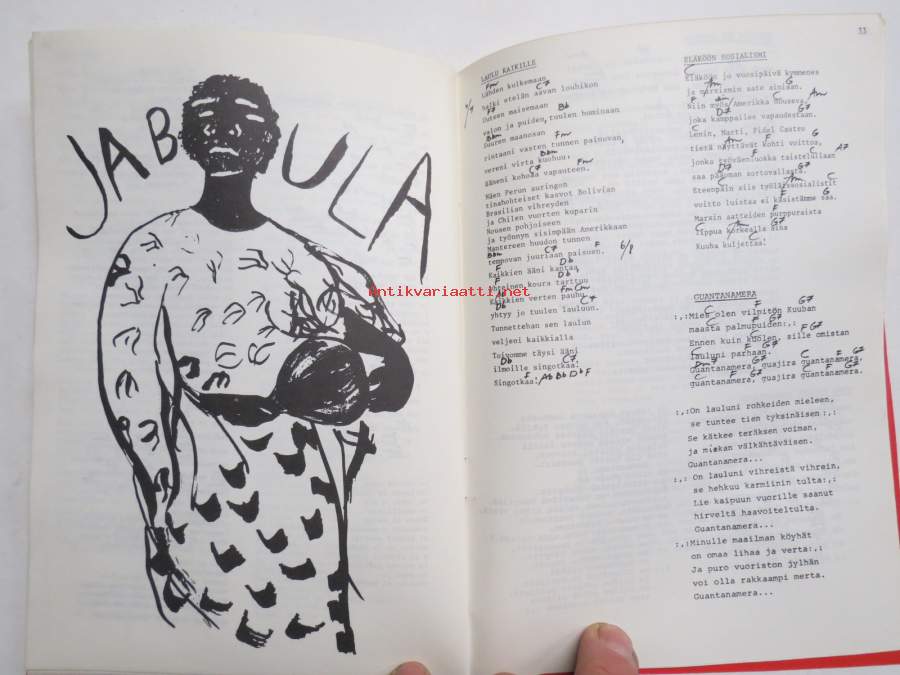 JABULA
33
LAULU KAIKILLE
Fm
Lähden kulkemaan
C7
halki etelän aavan louhikon
Uuteen maisemaan
Bb
valon ja puiden, tuulen huminaan
Bbm
Suuren maanosan
Fm
rintaani vasten tunnen painuvan,
Bbm
vereni virta kuohuu,
C7 Fm
ääneni kohoaa vapauteen.
Näen Perun auringon
tinahohteiset kasvot Bolivian
Brasilian vihreyden
ja Chilen vuorten kuparin
Nousen pohjoiseen
ja työnnyn sisimpään Amerikkaan
Mantereen huudon tunnen
Bbm C7 F 6/8
tempovan juuriaan paisuen.
F Db
Kaikkien ääni kantaa
F Db
yhteinen koura tarttuu
Ab Fm Cm
kaikkien verten pauhu
Db C7
yhtyy jo tuulen lauluun.
Tunnettehan sen laulun
veljeni kaikkialla
Toivomme täysi ääni
Db C7
ilmoille singotkaa!
F
Singotkaa! Ab Bb Db F
ELÄKÖÖN SOSIALISMI
C Am
Eläköön jo vuosipäivä kymmenes
G
ja marxismin sate ainiaan.
F C Am
Niin myös Amerikka nouseva,
D7 G7
joka kamppailee vapaudestaan.
C
Lenin, Marti, Fidel Castro
Am F G
tietä näyttävät kohti voittoa,
F C A7
jonka työväenluokka taistellaan
D7 G7
saa pääoman sortovallasta.
C Am
Eteenpäin siis työläissosialistit
F G
voitto luistaa ei käsistämme saa.
F
Marxin aatteiden purppuraista
C Am G7
lippua korkealle aina
C
Kuuba kuljettaa!
GUANTANAMERA
C F G7
:,:Mies olen vilpitön Kuuban
F G7
maasta palmupuiden:,:
C F G7
Ennen kuin kuolen, sille omistan
C F G7
lauluni parhaan.
Dm7 G7 C F G7
Guantanamera, guajira guantanamera,
C F G7 C F G7
guantanamera, guajira guantanamera.
:,:On lauluni rohkeiden mieleen,
se tuntee tien tyksinäisen:,:
Se kätkee teräksen voiman,
ja miekan välkähtäväisen.
Guantanamera...
:,: On lauluni vihreistä vihrein,
se hehkuu karmiinin tulta:,:
Lie kaipuun vuorille saanut
hirveltä haavoitetulta.
Guantanamera...
:,:Minulle maailman köyhät
on omaa lihaa ja verta:,:
Ja puro vuoriston jylhän
voi olla rakkaampi merta.
Guantanamera...
antikvariaatti.net